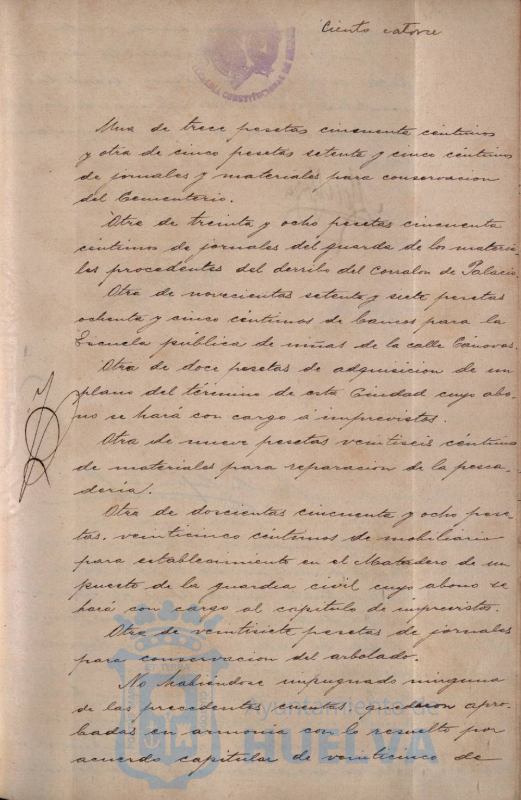 Ciento catorce
Una de trece pesetas cincuenta céntimos
y otra de cinco pesetas setenta y cinco céntimos
de jornales y materiales para conservacion
del Cementerio.
Otra de treinta y ocho pesetas cincuenta
céntimos de jornales del guarda de los materia-
les procedentes del derribo del corralon de Palacio
Otra de novecientas setenta y siete pesetas
ochenta y cinco céntimos de bancos para la
Escuela pública de niñas de la calle Cánovas.
Otra de doce pesetas de adquisicion de un
plano del término de esta Ciudad cuyo abo-
no se hará con cargo á imprevistos.
Otra de nueve pesetas veintiseis céntimos
de materiales para reparacion de la pesca-
dería.
Otra de doscientas cincuenta y ocho pese-
tas veinticinco céntimos de mobiliario
para establecimiento en el Matadero de un
puesto de la guardia civil cuyo abono se
hará con cargo al capítulo de imprevistos.
Otra de veintisiete pesetas de jornales
para conservacion del arbolado.
No habiéndose impugnado ninguna
de las precedentes cuentas, quedaron apro-
badas en armonia con lo resuelto por
acuerdo capitular de veinticinco de
Ayuntamiento de
HUELVA